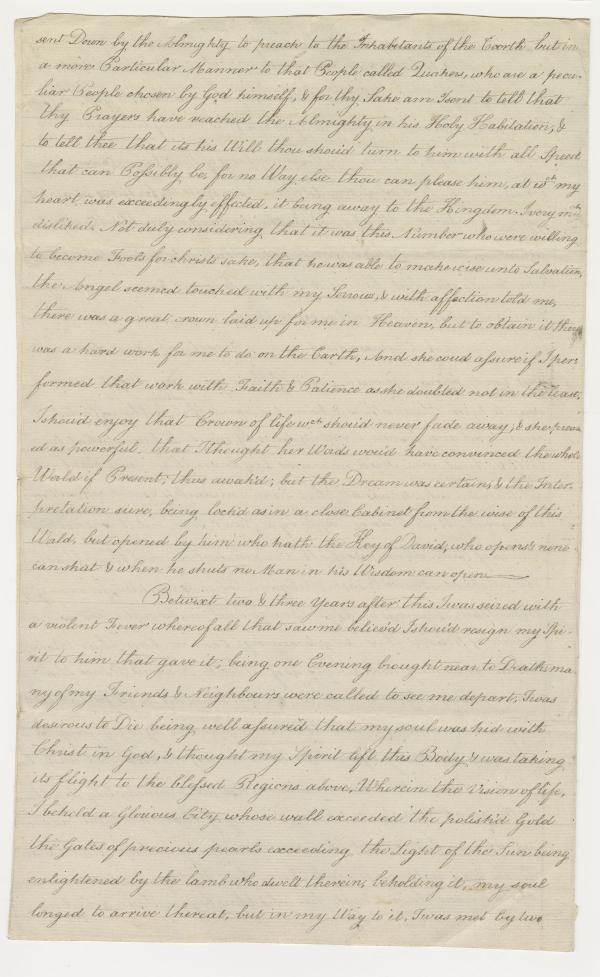 sent Down by the Almighty to preach to the Inhabitants of the Earth but in
a more Particular Manner to that People called Quakers, who are a pecu-
liar People chosen by God himself, & for thy Sake am I sent to tell that
thy Prayers have reached the Almighty in his Holy Habitation, &
to tell thee that its his Will thou shou'd turn to him with all Speed
that can Possibly be, for no Way else thou can please him, at wch. my
heart was exceedingly effected, it being away to the Kingdom I very
disliked. Not duly considering that it was this Number who were willing
to become Fools for christs sake, that he was able to make wise unto Salvation,
the Angel seemed touched with my Sorrow, & with affection told me,
there was a great crown laid up for me in Heaven, but to obtain it there
was a hard work for me to do on the Earth, And she coud assure if I per
formed that work with Faith & Patience as she doubted not in the least,
I shou'd enjoy that Crown of life wch shou'd never fade away, & she
ed as powerful, that I thought her Words wou'd have convinced the whole
World if Present, thus awak'd; but the Dream was certain, & the Inter-
pretation sure, being lock'd as in a close Cabinet from the wise of this
World, but opened by him who hath the Key of David, who opens & none
can shut & when he shuts no Man in his Wisdom can open
Betwixt two & three Years after this I was seized with
a violent Fever whereof all that saw me believ'd I shou'd resign my Spi-
rit to him that gave it; being one Evening brought near to Death ma-
ny of my Friends & Neighbours were called to see me depart, I was
desirous to Die being well assured that my soul was hid with
Christ in God, & thought my Spirit left this Body & was taking
its flight to the blessed Regions above, Wherein the Vision of life,
I beheld a Glorious City whose wall exceeded the polish'd Gold
the Gates of precious pearls exceeding the Light of the Sun being
enlightened by the lamb who dwelt therein, beholding it, my soul
longed to arrive thereat, but in my Way to it, I was met by two